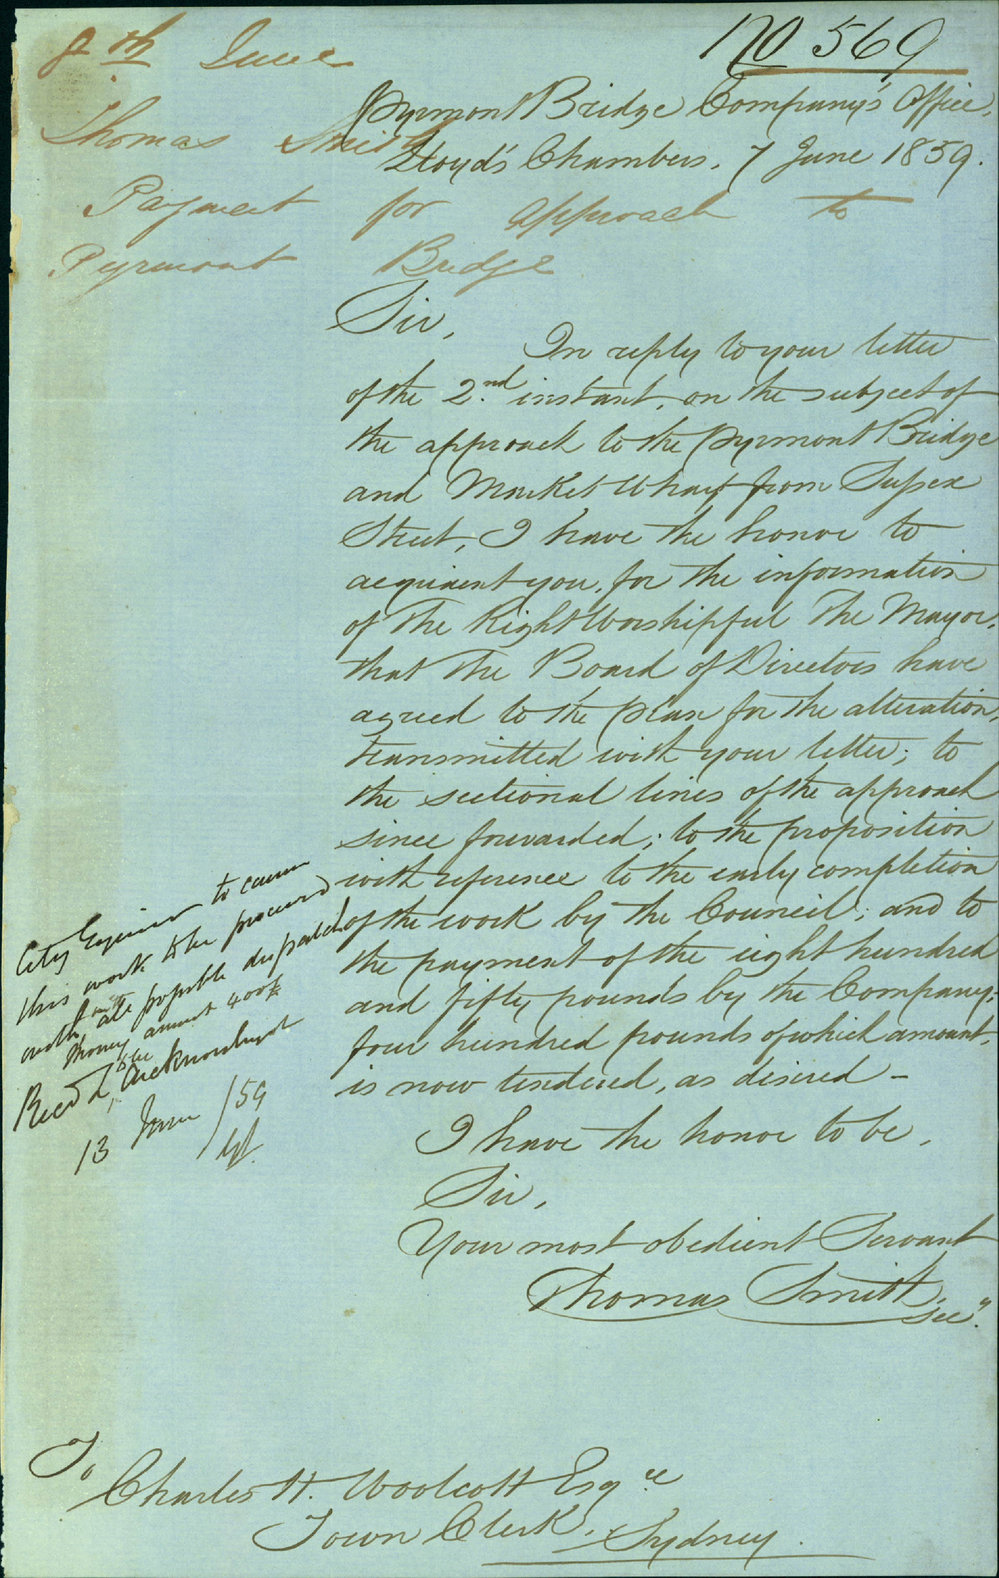 8th June
No 569
Thomas Smith
Payment for approach to
Pyrmont Bridge
Pyrmont Bridge Company's Office,
Lloyd's Chambers, 7 June 1859.
Sir,
In reply to your letter
of the 2nd instant, on the subject of
the approach to the Pyrmont Bridge
and Market Wharf from Sussex
Street, I have the honor to
acquaint you, for the information
of The Right Worshipful The Mayor,
that The Board of Directors have
agreed to the plan for the alteration,
transmitted with your letter; to
the sectional lines of the approach
since forwarded; to the proposition
with reference to the early completion
of the work by the Council; and to
the payment of the eight hundred
and fifty pounds by the Company;
four hundred pounds of which amount,
is now tendered, as desired –
I have the honor to be,
Sir,
Your most obedient Servant
Thomas Smith
Secy.
City Engineer to cause
this work to be proceeded
with with all possible dispatch
Money amount 400£
Recd to be acknowledged
13 June /59
To
Charles H. Woolcott Esqre
Town Clerk, Sydney.